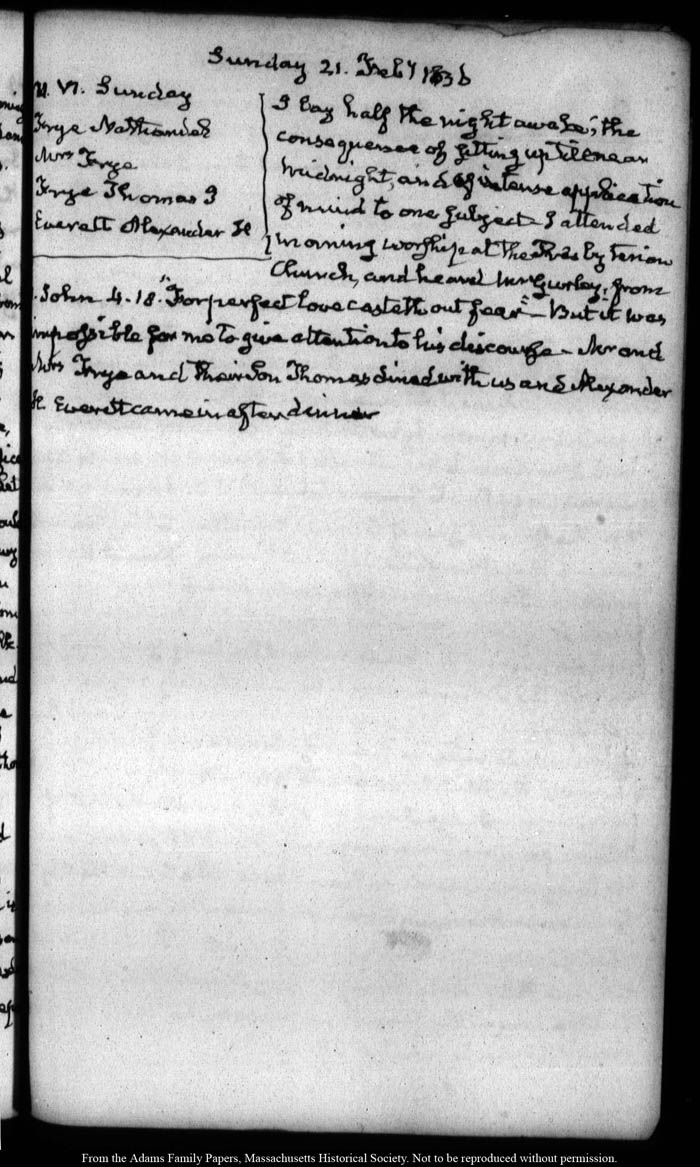 Sunday 21. Feby 1836
VI. Sunday
Frye Nathaniel
Mrs Frye
Frye Thomas J
Everett Alexander H
I lay half the night awake; the
consequence of sitting up till near
midnight, and of intense application
of mind to one subject I attended
morning worship at the Presbyterian
Church, and heard Mr Gurley, from
1. John 4. 18. "For perfect love casteth out fear" — But it was
impossible for me to give attention to his discourse — Mr and
Mrs Frye and their Son Thomas dined with us and Alexander
H. Everett came in after dinner
From the Adams Family Papers, Massachusetts Historical Society. Not to be reproduced without permission.